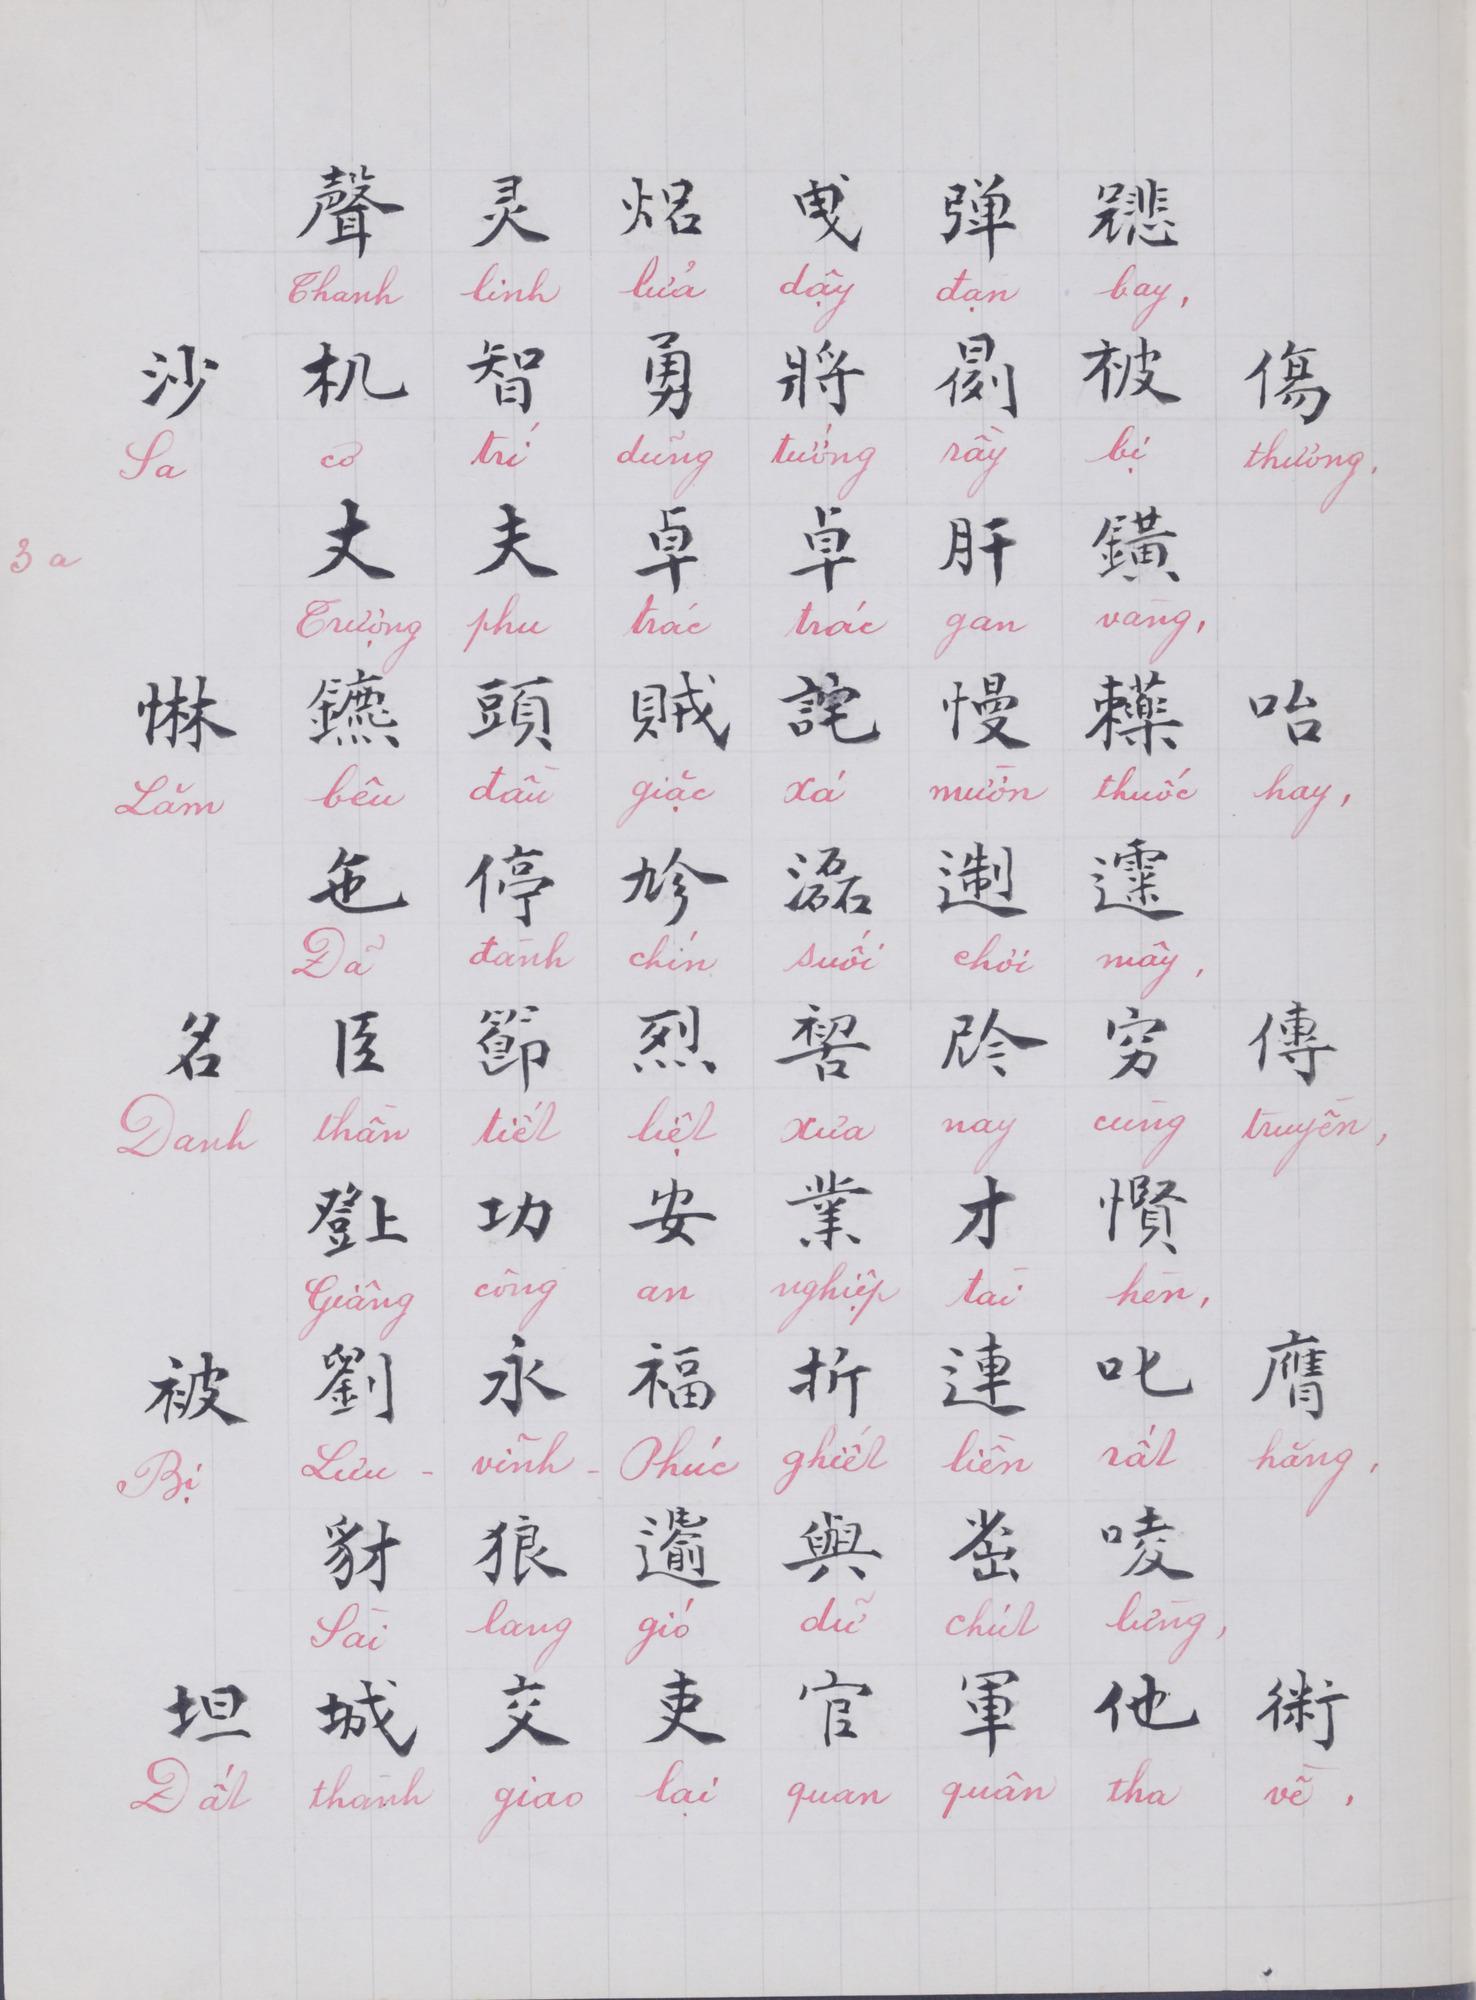 聲灵焒曵弹𩙻
Thanh linh lửa dậy đạn bay,
沙机智勇將𣇞被傷
Sa cơ trí dũng tướng rầy bị thương,
3a
丈夫卓卓肝鐄
Trượng phu trác trác gan vàng,
惏鑣頭賊詫慢𧆄咍
Lăm bêu đầu giặc xá mườn thuốc hay,
㐌停尬磊遰𩄲
Dã đành chín suối chơi mây,
名臣節烈𠸗𫢩穷傳
Danh thần tiết liệt xưa nay cùng truyền,
𨇒功安業才㦓
Giâng công an nghiệp tài hèn,
被劉永福折連叱膺
Bị Lưu-vĩnh-Phúc ghiết liền rất hăng,
豺狼𨗺與𡮇唛
Sài lang gió dữ chút lừng,
坦城交吏官軍他術
Dất thành giao lại quan quân tha về,